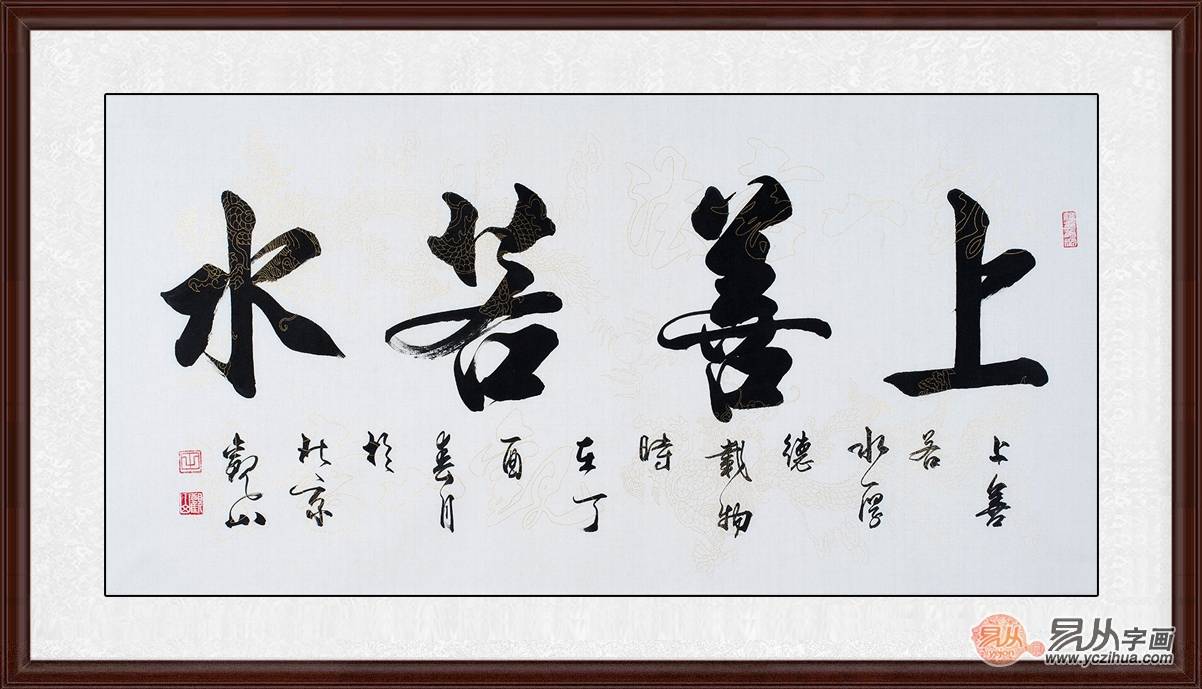 上善若水
上善
若
水厚
德
载物
時
在丁
酉
春月
於
北京
觀山
易从
易从字画
www.yczihua.com